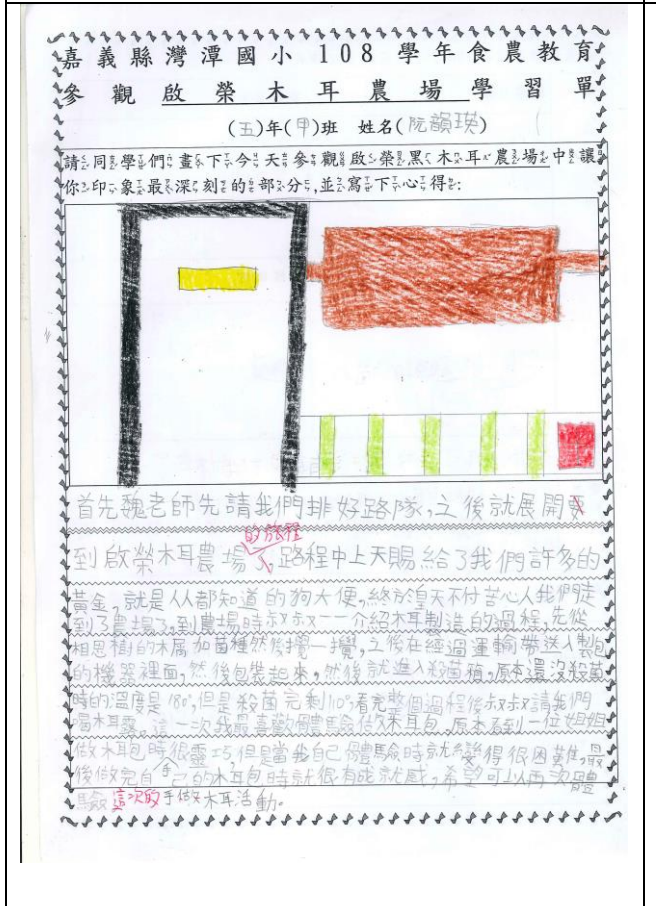 嘉義縣灣潭國小108學年食農教育
參觀 啟榮木耳農場 學習單
(五)年(甲)班 姓名(阮韻瑛)
請同學們畫下今天參觀啟榮黑木耳農場中讓
你印象最深刻的部分,並寫下心得:
首先魏老師先請我們排好路隊,之後就展開
的旅程
到啟榮木耳農場了,路程中上天賜給了我們許多的
黃金,就是人人都知道的狗大便,終於皇天不付苦心人我們走
到了農場了,到農場時叔叔一一介紹木耳製造的過程,先從
相思樹的木屑加菌種然後攪一攪,之後在經過運輸帶送入製包
的機器裡面,然後包裝起來,然後就進入殺菌 原本還沒殺菌
時的溫度是180°,但是殺菌完剩110°看完整個過程後叔叔請我們
喝木耳露,這一次我最喜歡體驗做木耳包,原本看到一位姐姐
做木耳包時很靈巧,但是當我自己體驗時就變得很困難,最
後做完自己的木耳包時就很有成就感,希望可以再次體
驗這次的手做木耳活動。